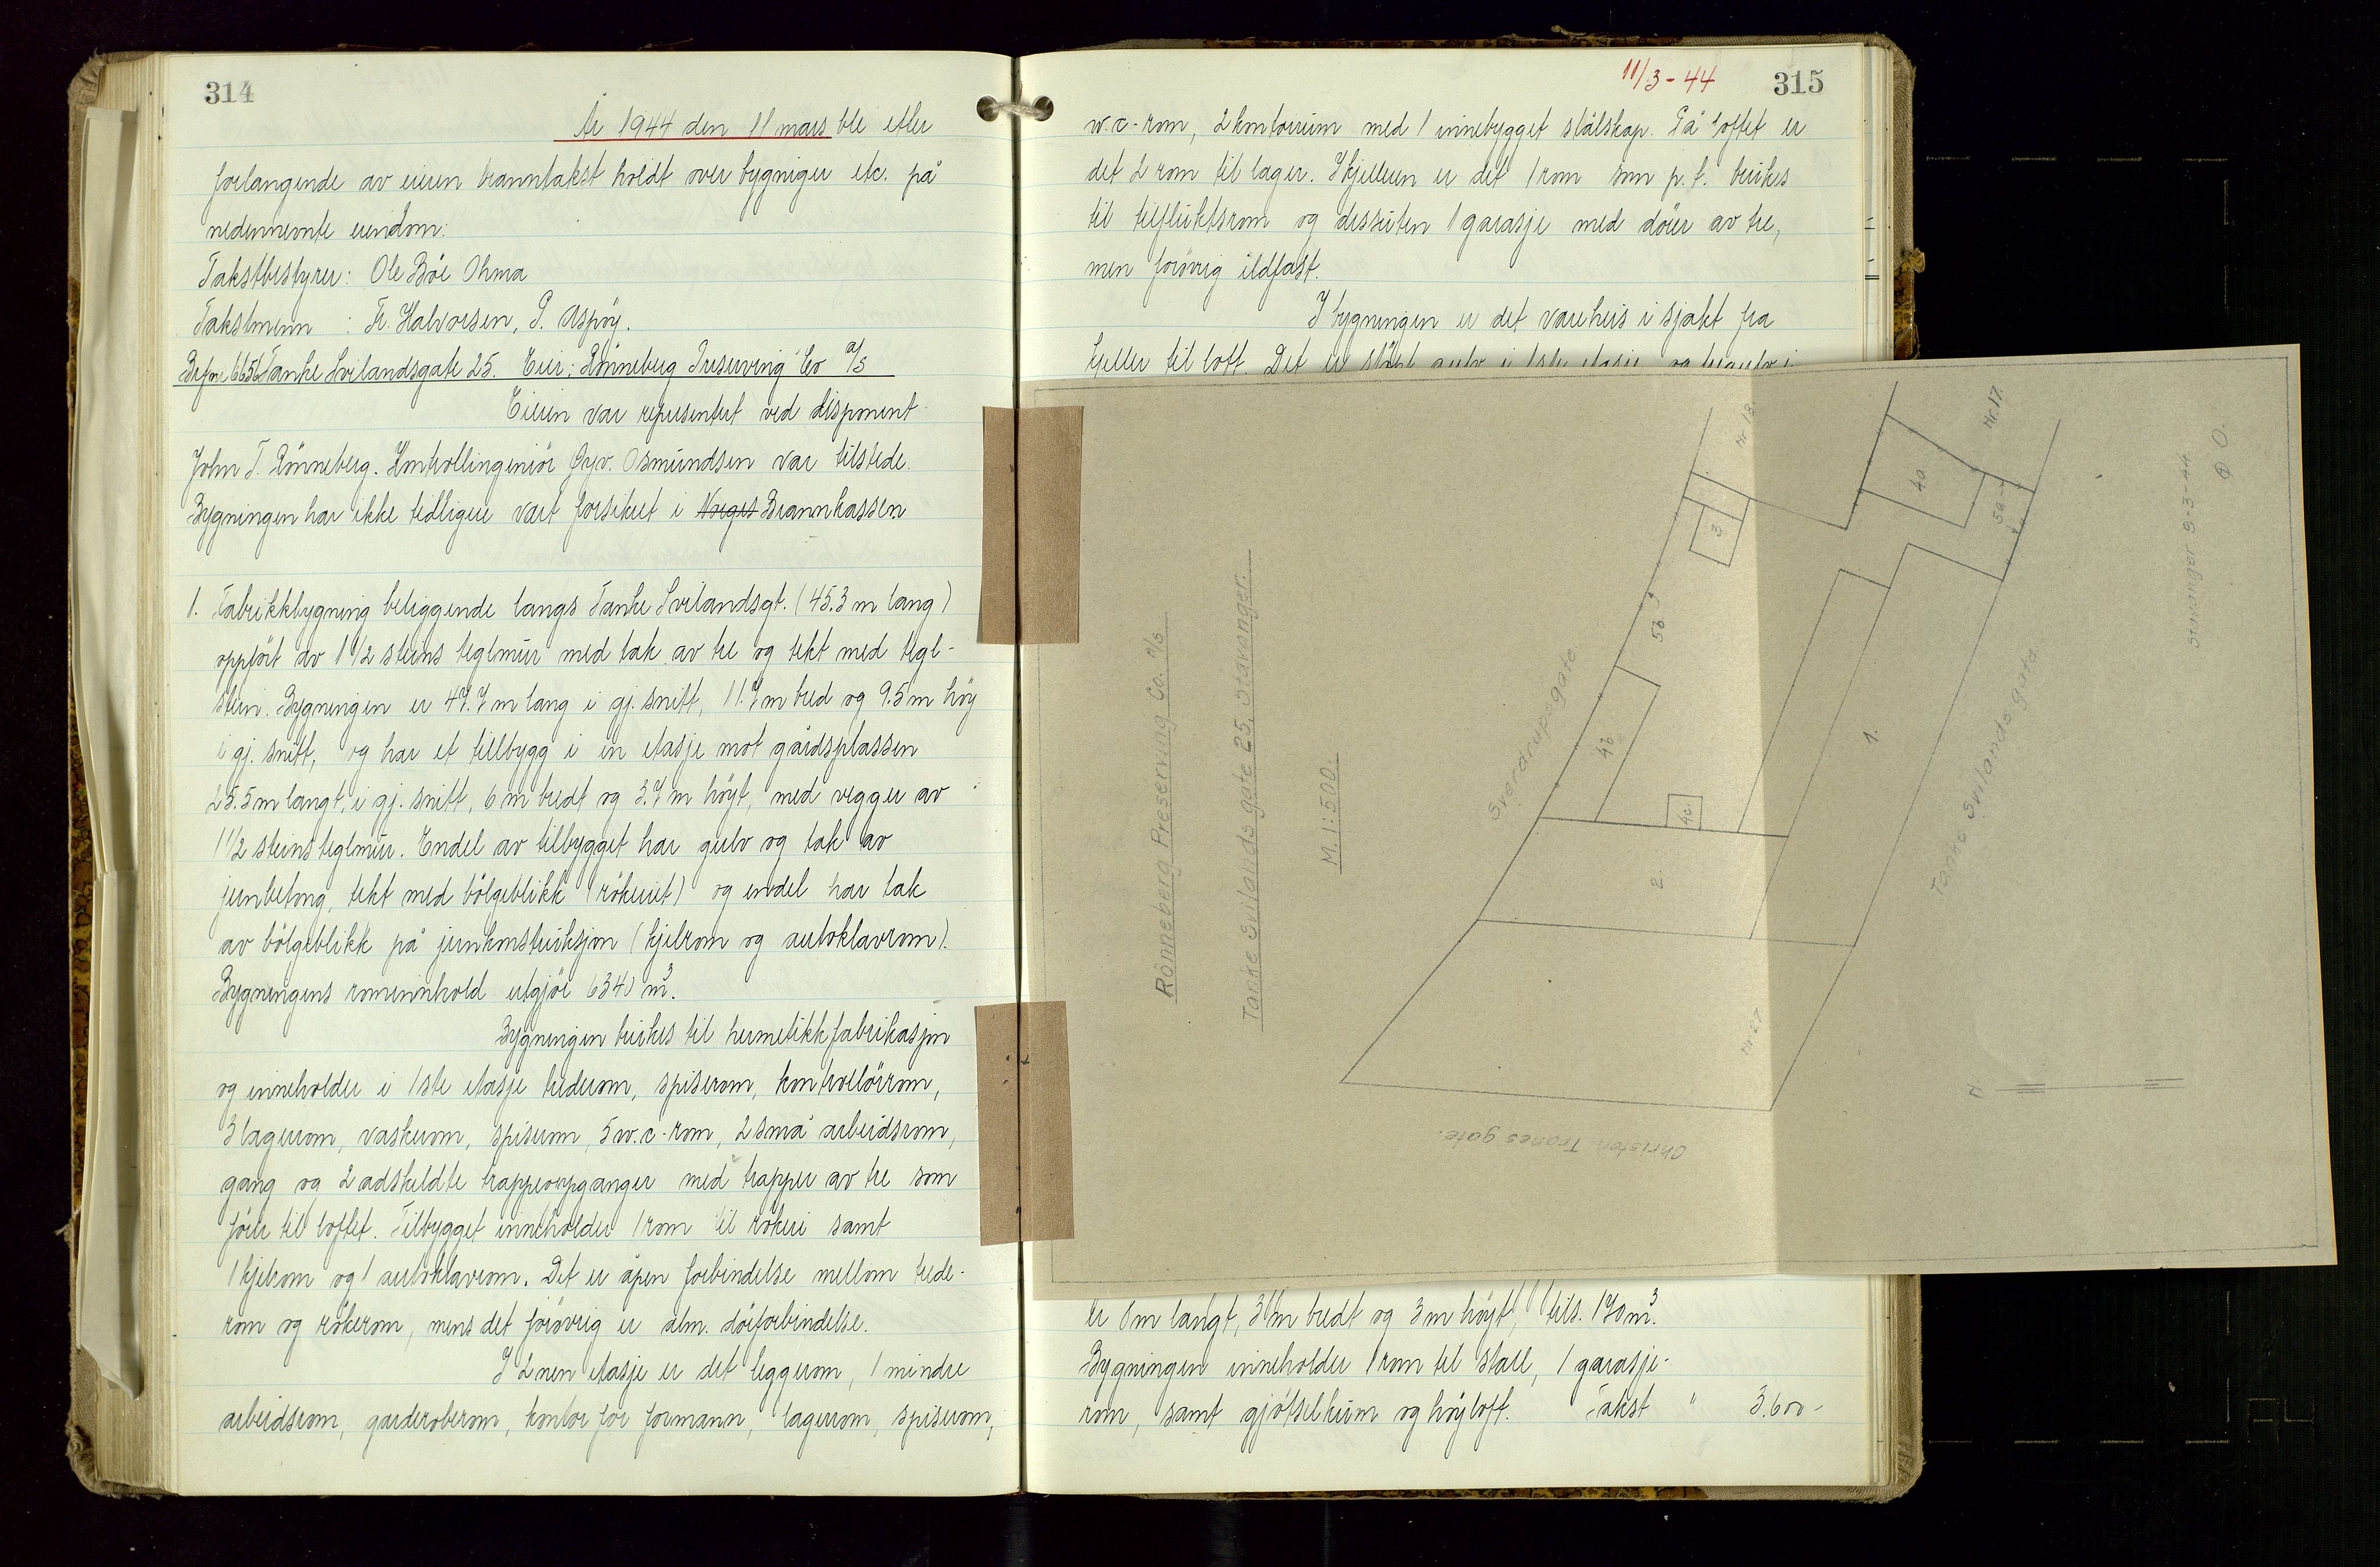 314
År 1944 den 11 mars ble efter
forlangende av eieren branntakst holdt over bygninger etc. på
nedennevnte eiendom:
Takstbestyrer: Ole Böe Ohma
Takstmenn : Fr. Halvorsen, P. Aspöy.
Br.for. 6656 Tanke Svilandsgate 25. Eier: Rönneberg Preserving Co A/S
Eieren var representert ved disponent
John T. Rönneberg. Kontrollingeniör Øyv. Osmundsen var tilstede.
Bygningen har ikke tidligere vært forsikret i Norges Brannkassen
1. Fabrikkbygning beliggende langs Tanke Svilandsgt. (45.3 m lang)
oppfört av 1 1/2 steins teglmur med tak av tre og tekt med tegl-
stein. Bygningen er 47.7 m lang i gj. snitt, 11.7 m bred og 9.5 m höy
i gj. snitt, og har et tilbygg i en etasje mot gårdsplassen
25.5 m langt, i gj. snitt, 6 m bredt og 3.7 m höyt, med vegger av
1 1/2 steins teglmur. Endel av tilbygget har gulv og tak av
jernbetong, tekt med bölgeblikk (rökeriet) og endel har tak
av bölgeblikk på jernkonstruksjon (kjelrom og autoklavrom).
Bygningens rominnhold utgjör 6340 m³.
Bygningen brukes til hermetikkfabrikasjon
og inneholder i 1ste etasje trederom, spiserom, kontrollörrom,
3 lagerrom, vaskerom, spiserom, 5 w.c-rom, 2 små arbeidsrom,
gang og 2 adskeldte trappeoppganger med trapper av tre som
förer til loftet. Tilbygget inneholder 1 rom til rökeri samt
1 kjelrom og 1 autoklavrom. Det er åpen forbindelse mellom trede-
rom og rökerom, mens det forövrig er alm. dörforbindelse.
I 2nen etasje er det leggerom, 1 mindre
arbeidsrom, garderoberom, kontor for formann, lagerrom, spiserom,
11/3 - 44
315
w.c-rom, 2 kontorrum med 1 innebygget stålskap. På loftet er
det 2 rom til lager. I kjelleren er det 1 rom som p.t. brukes
til tilfluktsrom og dessuten 1 garasje med dörer av tre,
men forövrig ildfast.
I bygningen er det vareheis i sjakt fra
kjeller til loft. Det er stöpt gulv i 1ste etasje og tregulv i
Rönneberg Preserving Co. A/S
Tanke Svilands gate 25, Stavanger.
M. 1:500.
Sverdrupsgate
Tanke Svilands gate
Christen Tranes gate.
Nr 13.
Nr. 17.
Nr 27
1.
2.
3
4a
4b
4c
5a
5b
N
Stavanger 9-3-44
Ø O.
er 8 m langt, 3 m bredt og 3 m höyt, tils. 170 m³.
Bygningen inneholder 1 rom til stall, 1 garasje-
rom, samt gjötselkum og höyloft. Takst " 3.600-